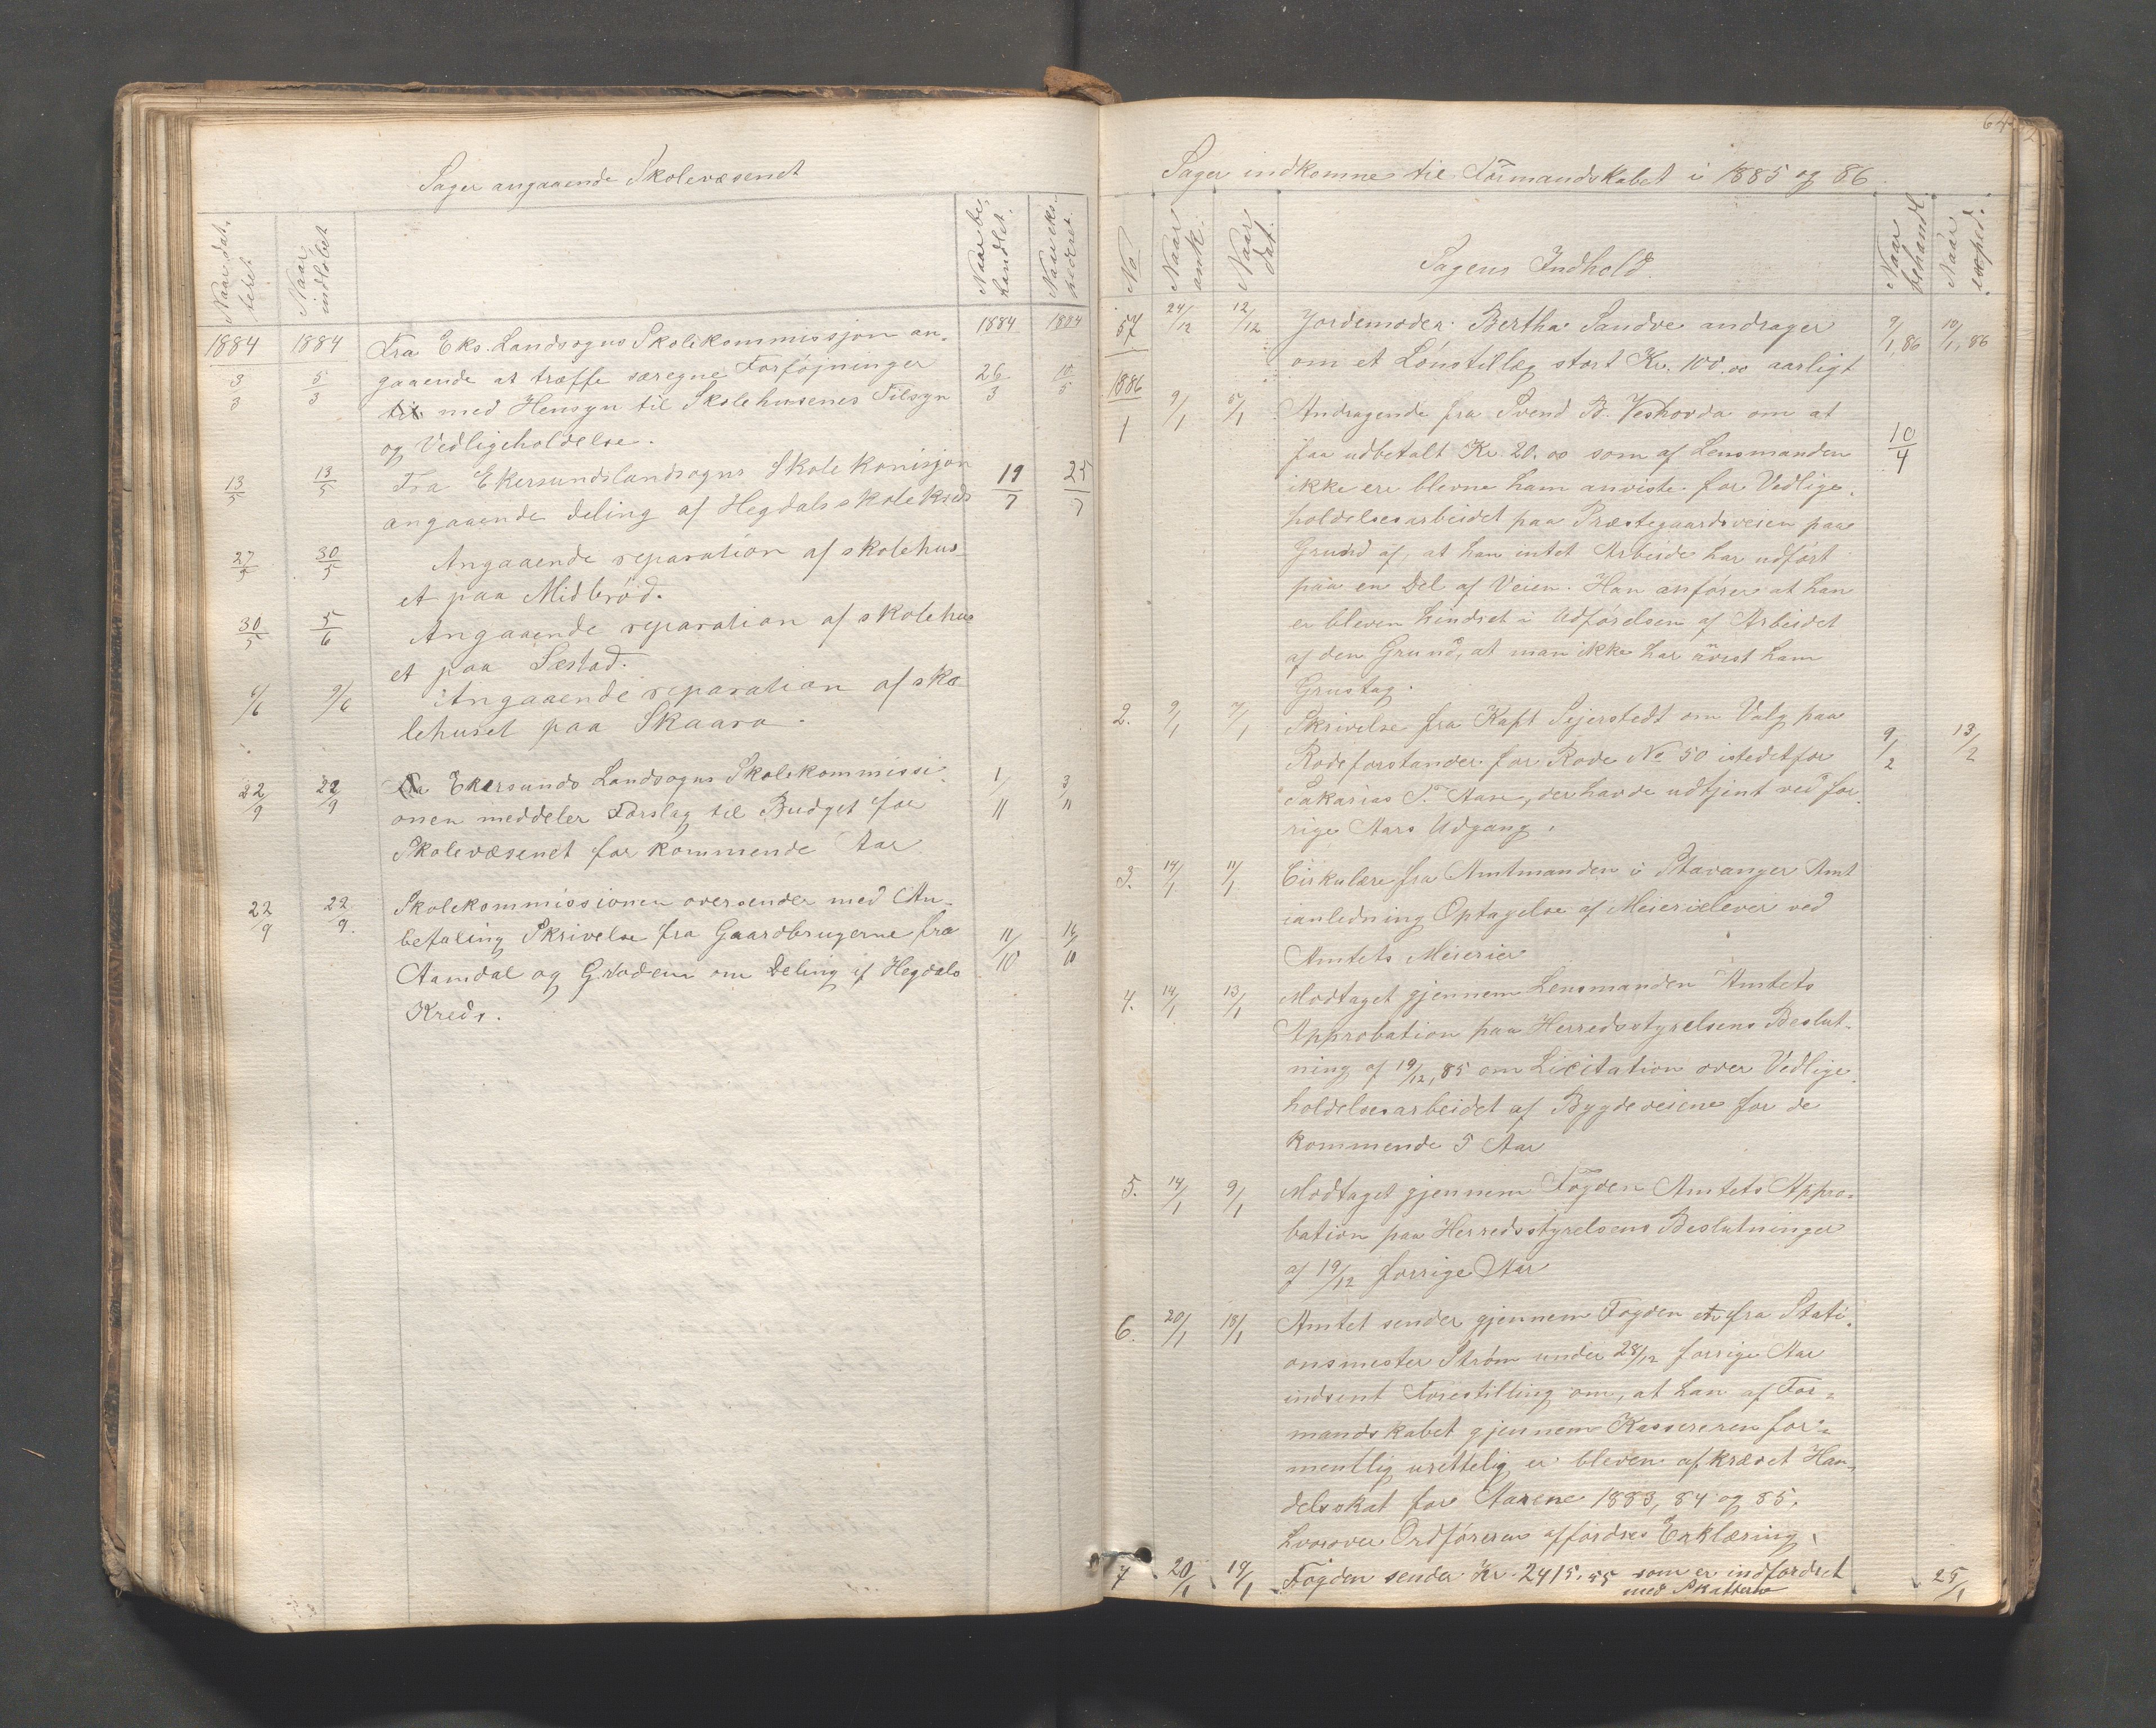 Sager angaaende Skolevæsenet
Naar dat- teret
Naar indløbet
Naar be- handlet.
Naar eks- pederet.
1884 1884 Fra Eks. Landsogns Skolekommissjon an- 1884 1884
3/3 5/3 gaaende at træffe særegne Forføjninger 26/3 10/5
med Hensyn til Skolehusenes Tilsyn
og Vedligeholdelse.
13/5 13/5 Fra Ekersundslandsogns Skole Komisjon 19/7 25/7
angaaende deling af Hegdals skolekreds
27/5 30/5 Angaaende reparation af skolehus-
et paa Midbrød.
30/5 5/6 Angaaende reparation af skolehus
et paa Sæstad.
6/6 9/6 Angaaende reparation af sko-
lehuset paa Skaara.
22/9 22/9 Fra Ekersunds Landsogns Skolekommissi- 1/11 3/11
onen meddeler Forslag til Budget for
Skolevæsenet for kommende Aar
22/9 22/9. Skolekommissionen oversender med An-
befaling Skrivelse fra Gaardbrugerne fra 11/10 16/10
Aamdal og Grøden om Deling af Hegdals
Kreds.
64
Sager indkomne til Formandskabet i 1885 og 86
No
Naar ank.
Naar dat.
Sagens Indhold
Naar behandl.
Naar exped.
57 24/12 12/12 Jordemoder Bertha Sandve andrager 9/1, 86 10/1, 86
om et Lønstillæg stort Kr. 100.00 aarligt
1886
1 9/1 5/1 Andragende fra Svend B. Veshovda om at
faa udbetalt Kr. 20.00 som af Lensmanden 10/4
ikke ere blevne ham anviste for Vedlige-
holdelsesarbeidet paa Præstegaardsveien paa
Grund af, at han intet Arbeide har udført
paa en Del af Veien. Han anfører at han
er bleven hindret i Udførelsen af Arbeidet
af den Grund, at man ikke har anvist ham
Grustag.
2. 9/1 7/1 Skrivelse fra Kapt Sejerstedt om Valg paa
Rodeforstander for Rode No 50 istedetfor 9/2 13/2
Sakarias S. Aase, der havde udtjent ved for-
rige Aars Udgang.
3. 14/1 11/1 Cirkulære fra Amtmanden i Stavanger Amt
ianledning Optagelse af Meierielever ved
Amtets Meierier
4. 14/1 13/1 Modtaget gjennem Lensmanden Amtets
Approbation paa Herredsstyrelsens Beslut-
ning af 19/12, 85 om Licitation over Vedlige-
holdelsesarbeidet af Bygdeveiene for de
kommende 5 Aar
5. 14/1 9/1 Modtaget gjennem Fogden Amtets Appro-
bation paa Herredsstyrelsens Beslutninger
af 19/12 forrige Aar
6. 20/1 18/1 Amtet sender gjennem Fogden en fra Stati-
onsmester Strøm under 28/12 forrige Aar
indsent Forestilling om, at han af For-
mandskabet gjennem Kassereren for-
mentlig urettelig er bleven afkrævet Han-
delsskat for Aarene 1883, 84 og 85,
hvorover Ordføreren affordres Erklæring.
7 20/1 19/1 Fogden sender Kr. 2415.55 som er indfordret 25/1
med Skatterne